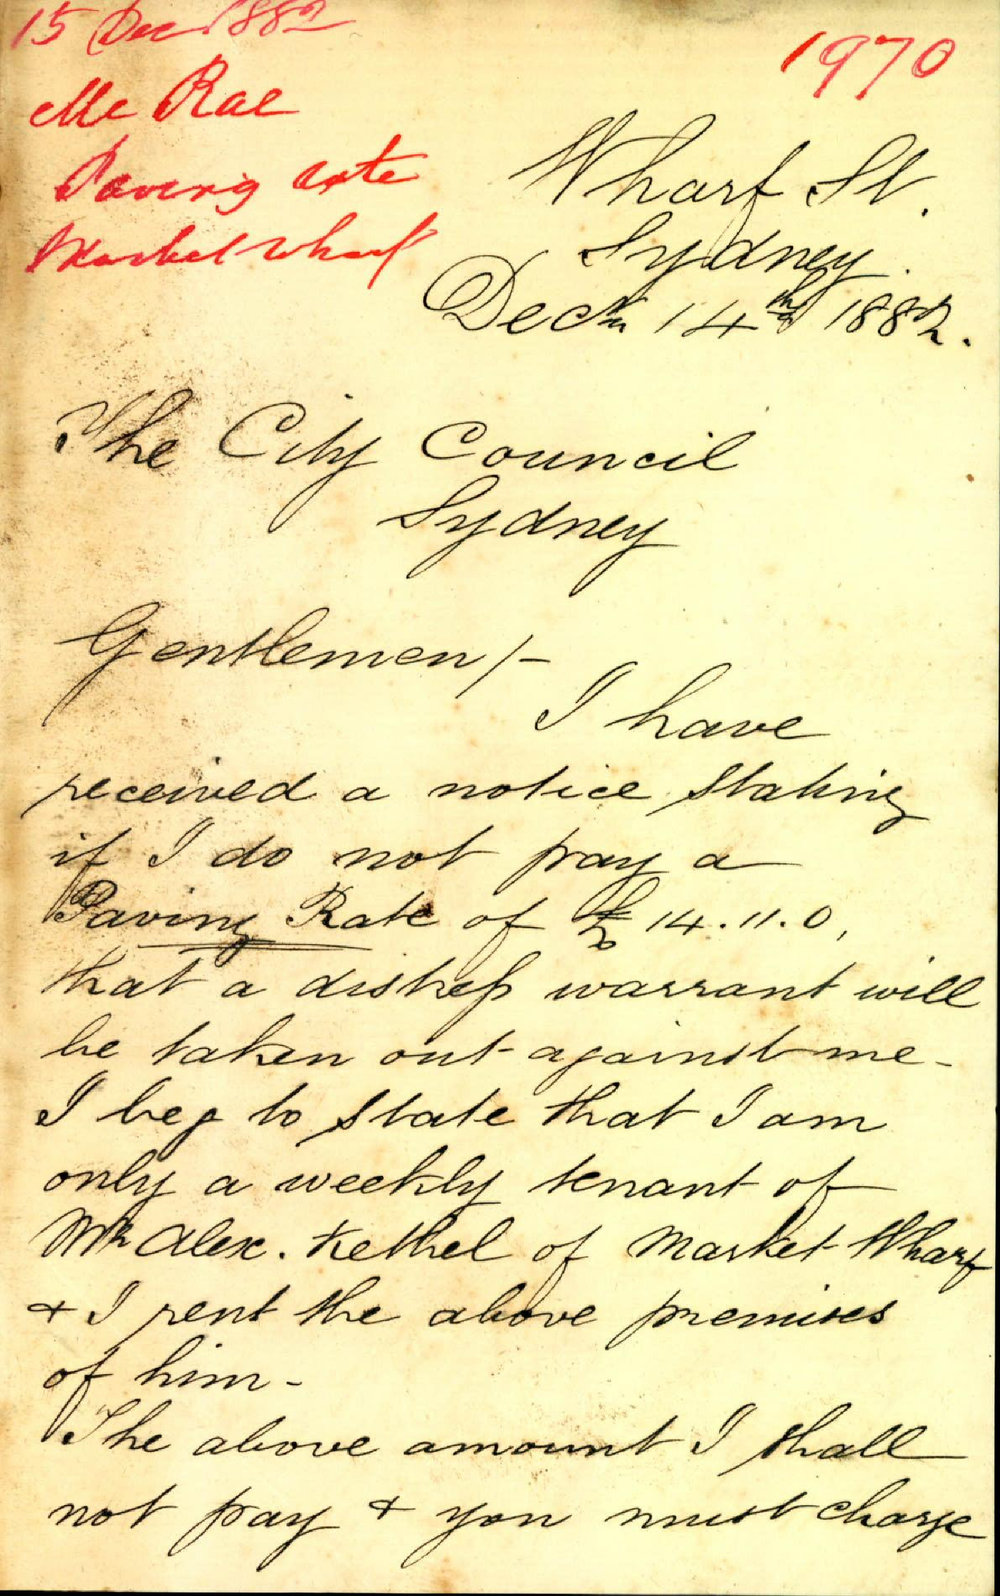 15 Dec 1882
Mc Rae
Paving rate
Market Wharf
1970
Wharf St.
Sydney.
Decr 14th 1882.
The City Council
Sydney
Gentlemen/-
I have
received a notice stating
if I do not pay a
Paving Rate of £14.11.0,
that a distress warrant will
be taken out against me-
I beg to state that I am
only a weekly tenant of
Mr Alex. Kethel of Market Wharf
& I rent the above premises
of him-
The above amount I shall
not pay & you must charge